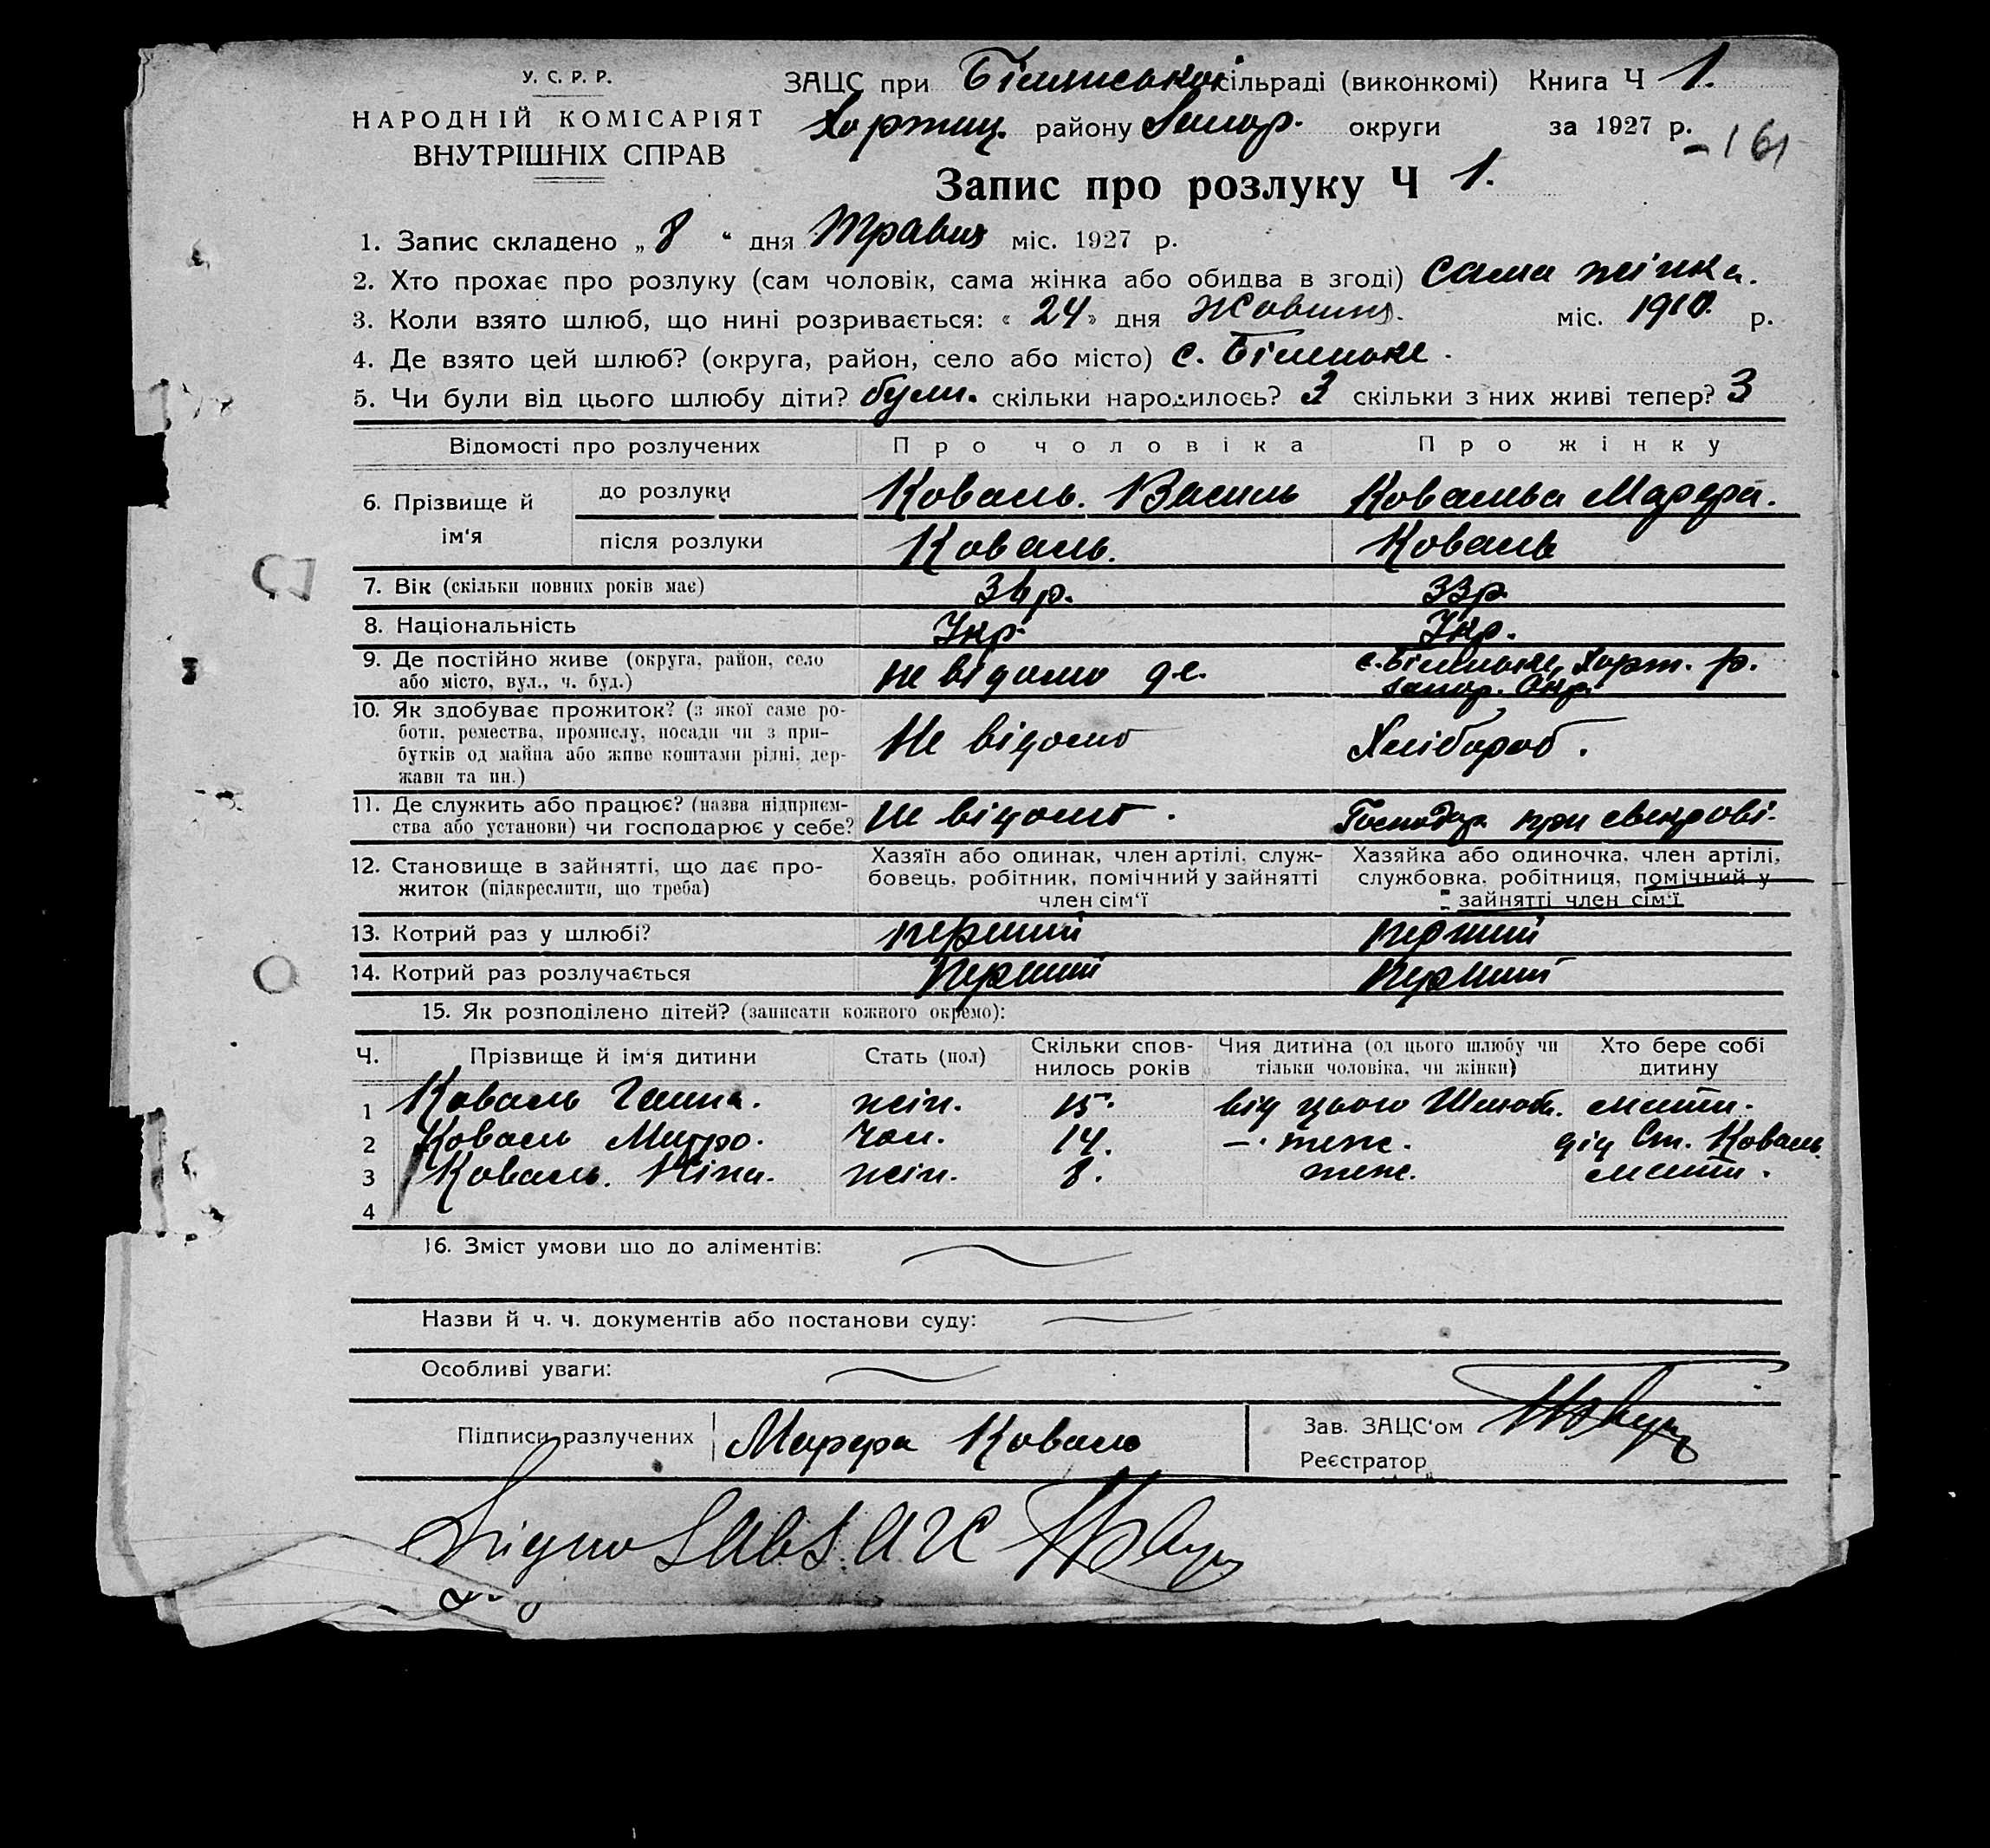 У. С. Р. Р.
НАРОДНІЙ КОМІСАРІЯТ
ВНУТРІШНІХ СПРАВ
ЗАЦС при сільраді (виконкомі) Книга Ч 1.
Хортиц. району Запор. округи за 1927 р.
161
Запис про розлуку Ч 1.
1. Запис складено „ 8 “ дня Травня міс. 1927 р.
2. Хто прохає про розлуку (сам чоловік, сама жінка або обидва в згоді) сама жінка.
3. Коли взято шлюб, що нині розривається: « 24 » дня Жовтня. міс. 1910. р.
4. Де взято цей шлюб? (округа, район, село або місто) с.
5. Чи були від цього шлюбу діти? були. скільки народилось? 3 скільки з них живі тепер? 3
Відомості про розлучених Про чоловіка Про жінку
6. Прізвище й ім‘я до розлуки Коваль. Василь
після розлуки Коваль. Коваль
7. Вік (скільки повних років має) 33р.
8. Національність Укр. Укр.
9. Де постійно живе (округа, район, село або місто, вул., ч. буд.) не відомо де. Хорт. р. запор. Окр.
10. Як здобуває прожиток? (з якої саме роботи, ремества, промислу, посади чи з прибутків од майна або живе коштами рідні, держави та ин.) Не відомо Хлібороб.
11. Де служить або працює? (назва підприємства або установи) чи господарює у себе? Не відомо. Господар при свекрові.
12. Становище в зайнятті, що дає прожиток (підкреслити, що треба)
Хазяїн або одинак, член артілі, службовець, робітник, помічний у зайнятті член сім‘ї
Хазяйка або одиночка, член артілі, службовка, робітниця, помічний у зайнятті член сім‘ї
13. Котрий раз у шлюбі? перший перший
14. Котрий раз розлучається перший перший
15. Як розподілено дітей? (записати кожного окремо):
Ч. Прізвище й ім‘я дитини Стать (пол) Скільки сповнилось років Чия дитина (од цього шлюбу чи тільки чоловіка, чи жінки) Хто бере собі дитину
1 Коваль Ганна. жін. 15. від цього Шлюб. мати.
2 Коваль Митро. чол. 14. —. теж. дід Ст. Коваль.
3 Коваль. Ніна. жін. 8. теж. мати.
4
16. Зміст умови що до аліментів:
Назви й ч. ч. документів або постанови суду:
Особливі уваги:
Підписи разлучених Коваль
Зав. ЗАЦС‘ом
Реєстратор